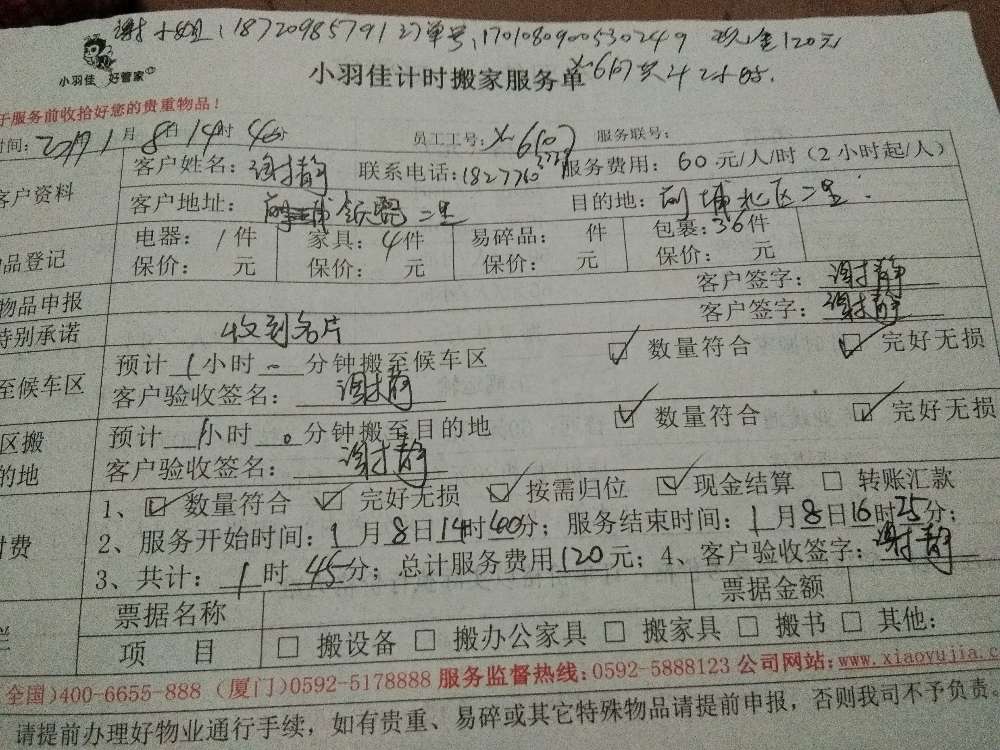 谢小姐:18720985791 订单号:1701080900530249 现金120元
小羽佳 好管家
小羽佳计时搬家服务单
共4小时.
于服务前收拾好您的贵重物品!
时间: 1月8日14时40分 员工工号: 服务联号:
客户资料
客户姓名:谢静 联系电话: 服务费用:60元/人/时(2小时起/人)
客户地址: 二里 目的地: 埔北区二里.
品登记
电器:1件 家具:4件 易碎品: 件 包裹:36件
保价: 元 保价: 元 保价: 元 保价: 元
物品申报 客户签字:谢静
特别承诺 收到名片 客户签字:谢静
至候车区
预计1小时 分钟搬至候车区 数量符合 完好无损
客户验收签名:谢静
区搬
的地
预计1小时0分钟搬至目的地 数量符合 完好无损
客户验收签名:谢静
付费
1、 数量符合 完好无损 按需归位 现金结算 转账汇款
2、服务开始时间:1月8日14时40分;服务结束时间:1月8日16时25分;
3、共计:1时45分;总计服务费用120元;4、客户验收签字:谢静
票据名称 票据金额
项 目 搬设备 搬办公家具 搬家具 搬书 其他:
全国)400-6655-888 (厦门)0592-5178888 服务监督热线:0592-5888123 公司网站:www.xiaoyujia.c
请提前办理好物业通行手续,如有贵重、易碎或其它特殊物品请提前申报,否则我司不予负责。